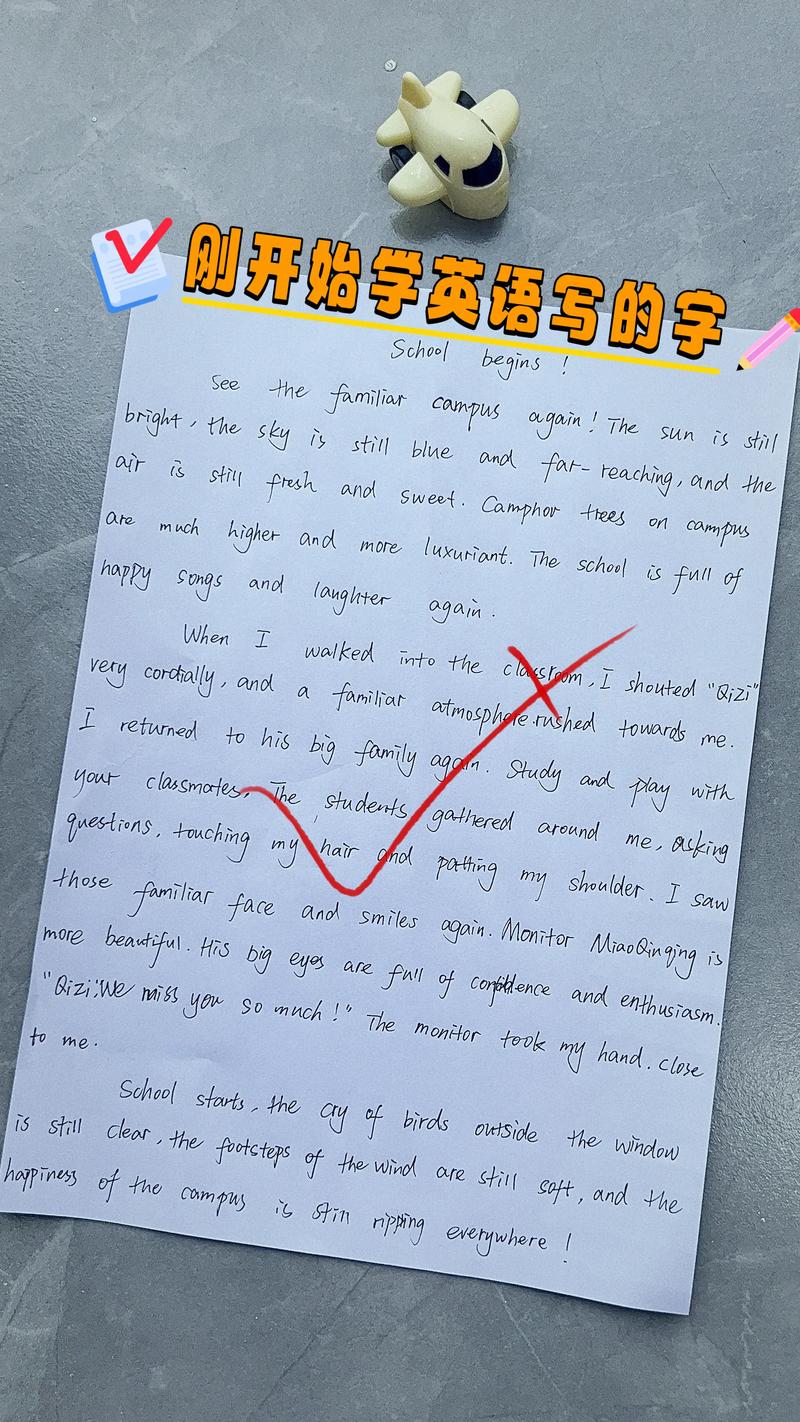 刚开始学英语写的字
School begins !
See the familiar campus again! The sun is still
bright, the sky is still blue and far-reaching, and the
air is still fresh and sweet. Camphor trees on campus
are much higher and more luxuriant. The school is full of
happy songs and laughter again.
When I walked into the classroom, I shouted "QiZi"
very cordially, and a familiar atmosphere rushed towards me.
I returned to his big family again. Study and play with
your classmates. The students gathered around me, asking
questions, touching my hair and patting my shoulder. I saw
those familiar face and smiles again. Monitor MiaoQinqing is
more beautiful. His big eyes are full of confidence and enthusiasm.
"Qizi: We miss you so much!" The monitor took my hand. Close
to me.
School starts, the cry of birds outside the window
is still clear, the footsteps of the wind are still soft, and the
happiness of the campus is still ripping everywhere !